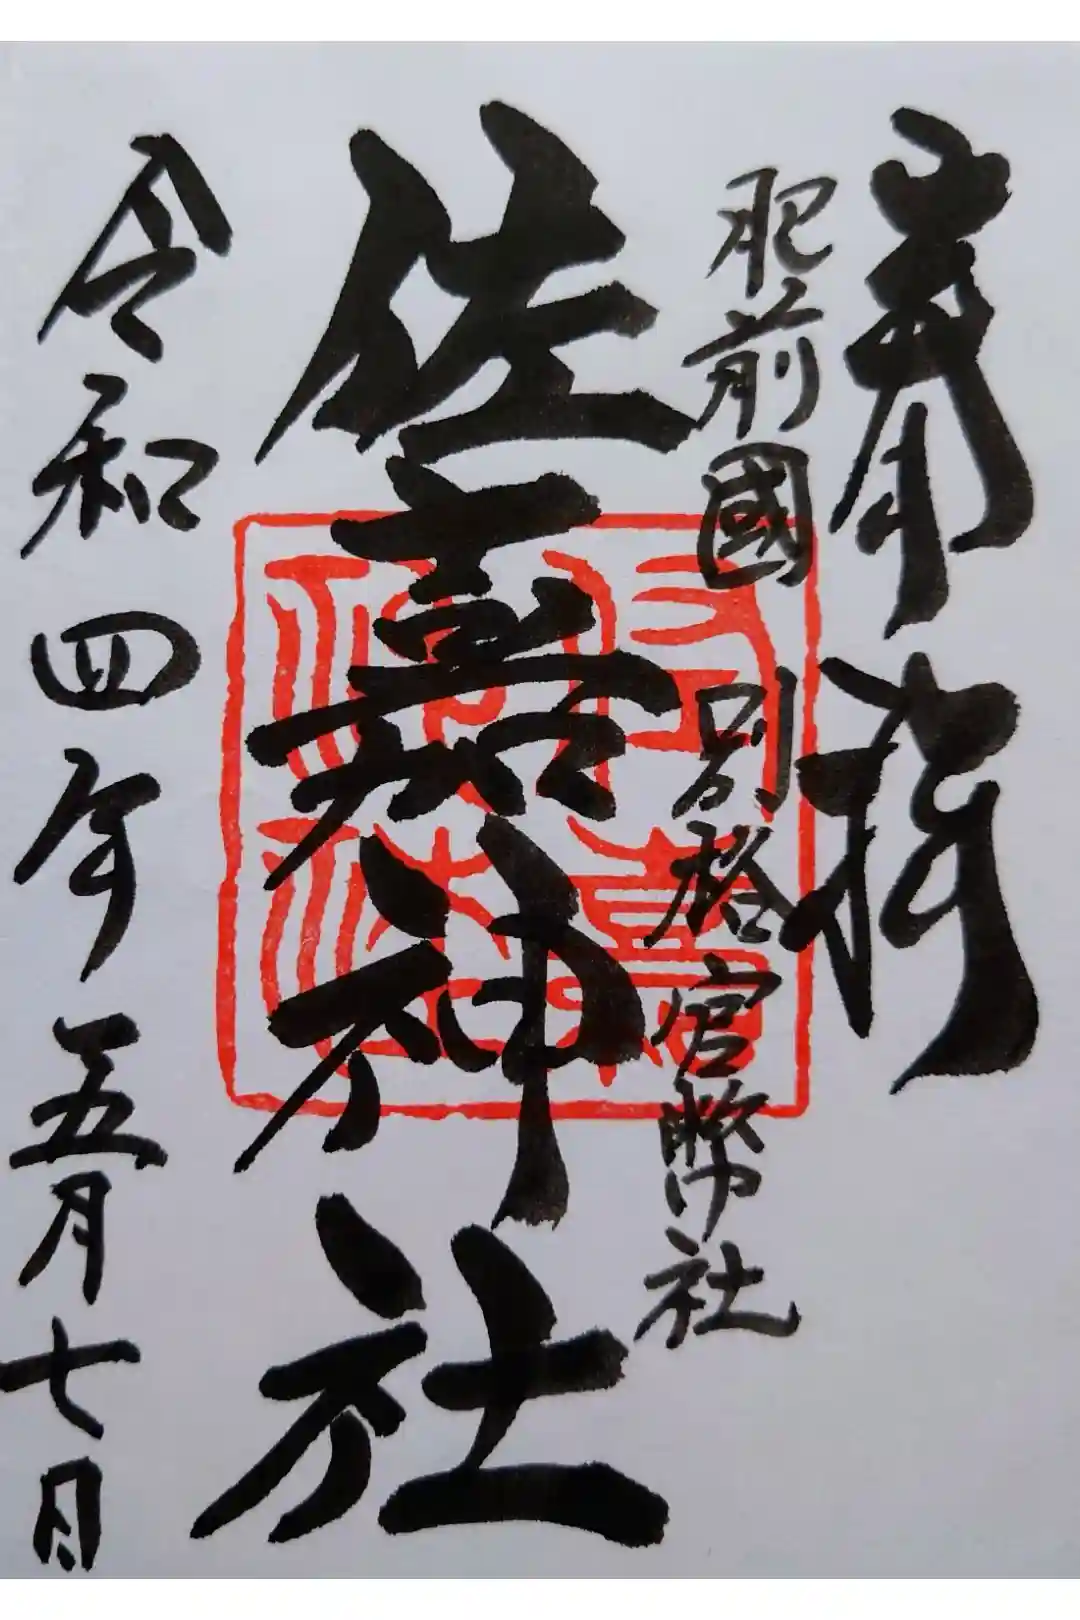 奉拝
肥前國 別格官幣社
佐嘉神社
佐嘉神社
令和四年五月七日